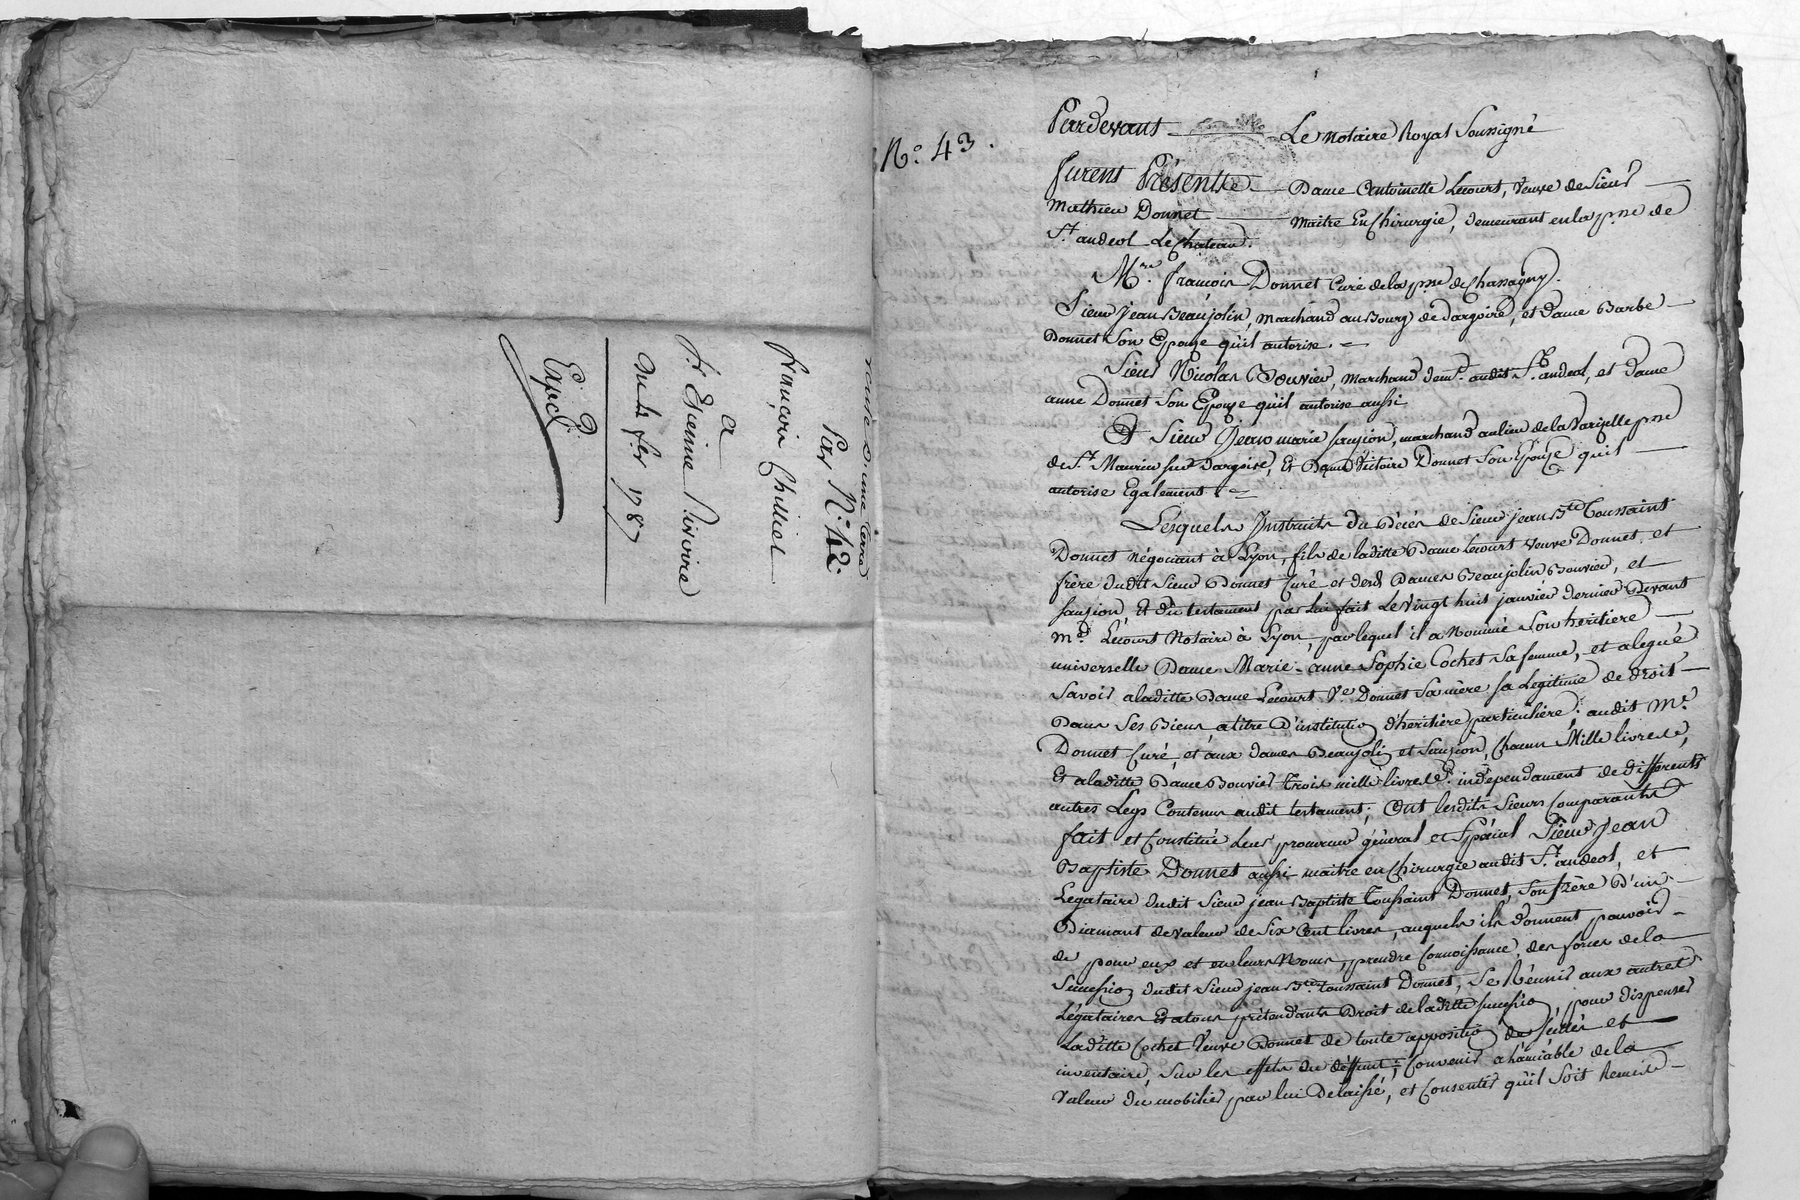 Vente d'une terre
Par N.° 42.
françois Chilliet
a
Sr. Etienne Rivoire
du 14 fev 1787
Expéd
N.° 43.
Pardevant Le notaire Royal Soussigné
furent Présents Dame antoinette Lecourt, veuve de Sieur
Mathieu Donnet maitre En Chirurgie, demeurant en la psse de
St. andeol Le Chateau.
Mre. françois Donnet Curé de la psse de Chassagny.
Sieur Jean Beaujolin, marchand au Bourg de dargoire, et dame Barbe
Donnet Son Epouse qu'il autorise.
Sieur Nicolas Bouvier, marchand demt. audit St. andeol, et dame
anne Donnet Son Epouse qu'il autorise aussi
Et Sieur Jean marie Saugion, marchand au lieu de la Varizelle psse
de St. Maurice sur dargoire, Et Dame Victoire Donnet Son Epouse qu'il
autorise Egalement.
Lesquels Instruits du Décés de Sieur jean Bte Toussaint
Donnet négociant à Lyon, fils de laditte Dame Lecourt veuve Donnet, et
frère dudit Sieur Donnet Curé et desd Dames Beaujolin Bouvier, et
Saugion Et du testament par lui fait Le vingt huit janvier dernier Devant
me. Lecourt Notaire à Lyon, par lequel il a Nommé Son heritiere
universelle Dame Marie-anne Sophie Cochet Sa femme, et alegué
Savoir a laditte Dame Lecourt Ve Donnet Sa mère Sa Legitime de droit
Dans Ses Biens, a titre D'institution d'heritière particulière: audit Mr.
Donnet Curé, et aux dames Beaujolin et Saugion, Chacun Mille livres,
Et a laditte Dame Bouvier trois mille livres, independament de differents
autres Legs Contenus audit testament; Ont lesdits Sieurs Comparants
fait et Constitué Leur procureur général et Spécial Sieur Jean
Baptiste Donnet aussi maitre en Chirurgie audit St. andeol, et
Legataire dudit Sieur jean Baptiste Toussaint Donnet, Son frère D'un
Diamant de valeur de Six Cent livres, auquels ils donnent pouvoir
de pour eux et en leurs Noms, prendre Connoissance des forces de la
Succession dudit Sieur jean Bte. toussaint Donnet, Se Réunir aux autres
Légataires Et a tous prétendants Droit de laditte succession, pour dispenser
Laditte Cochet Veuve Donnet de toute apposition de scéllés et
inventaire, Sur les effets du deffunt; Convenir a l'amiable de la
Valeur du mobilier par lui Delaissé, et Consentir qu'il Soit Remis